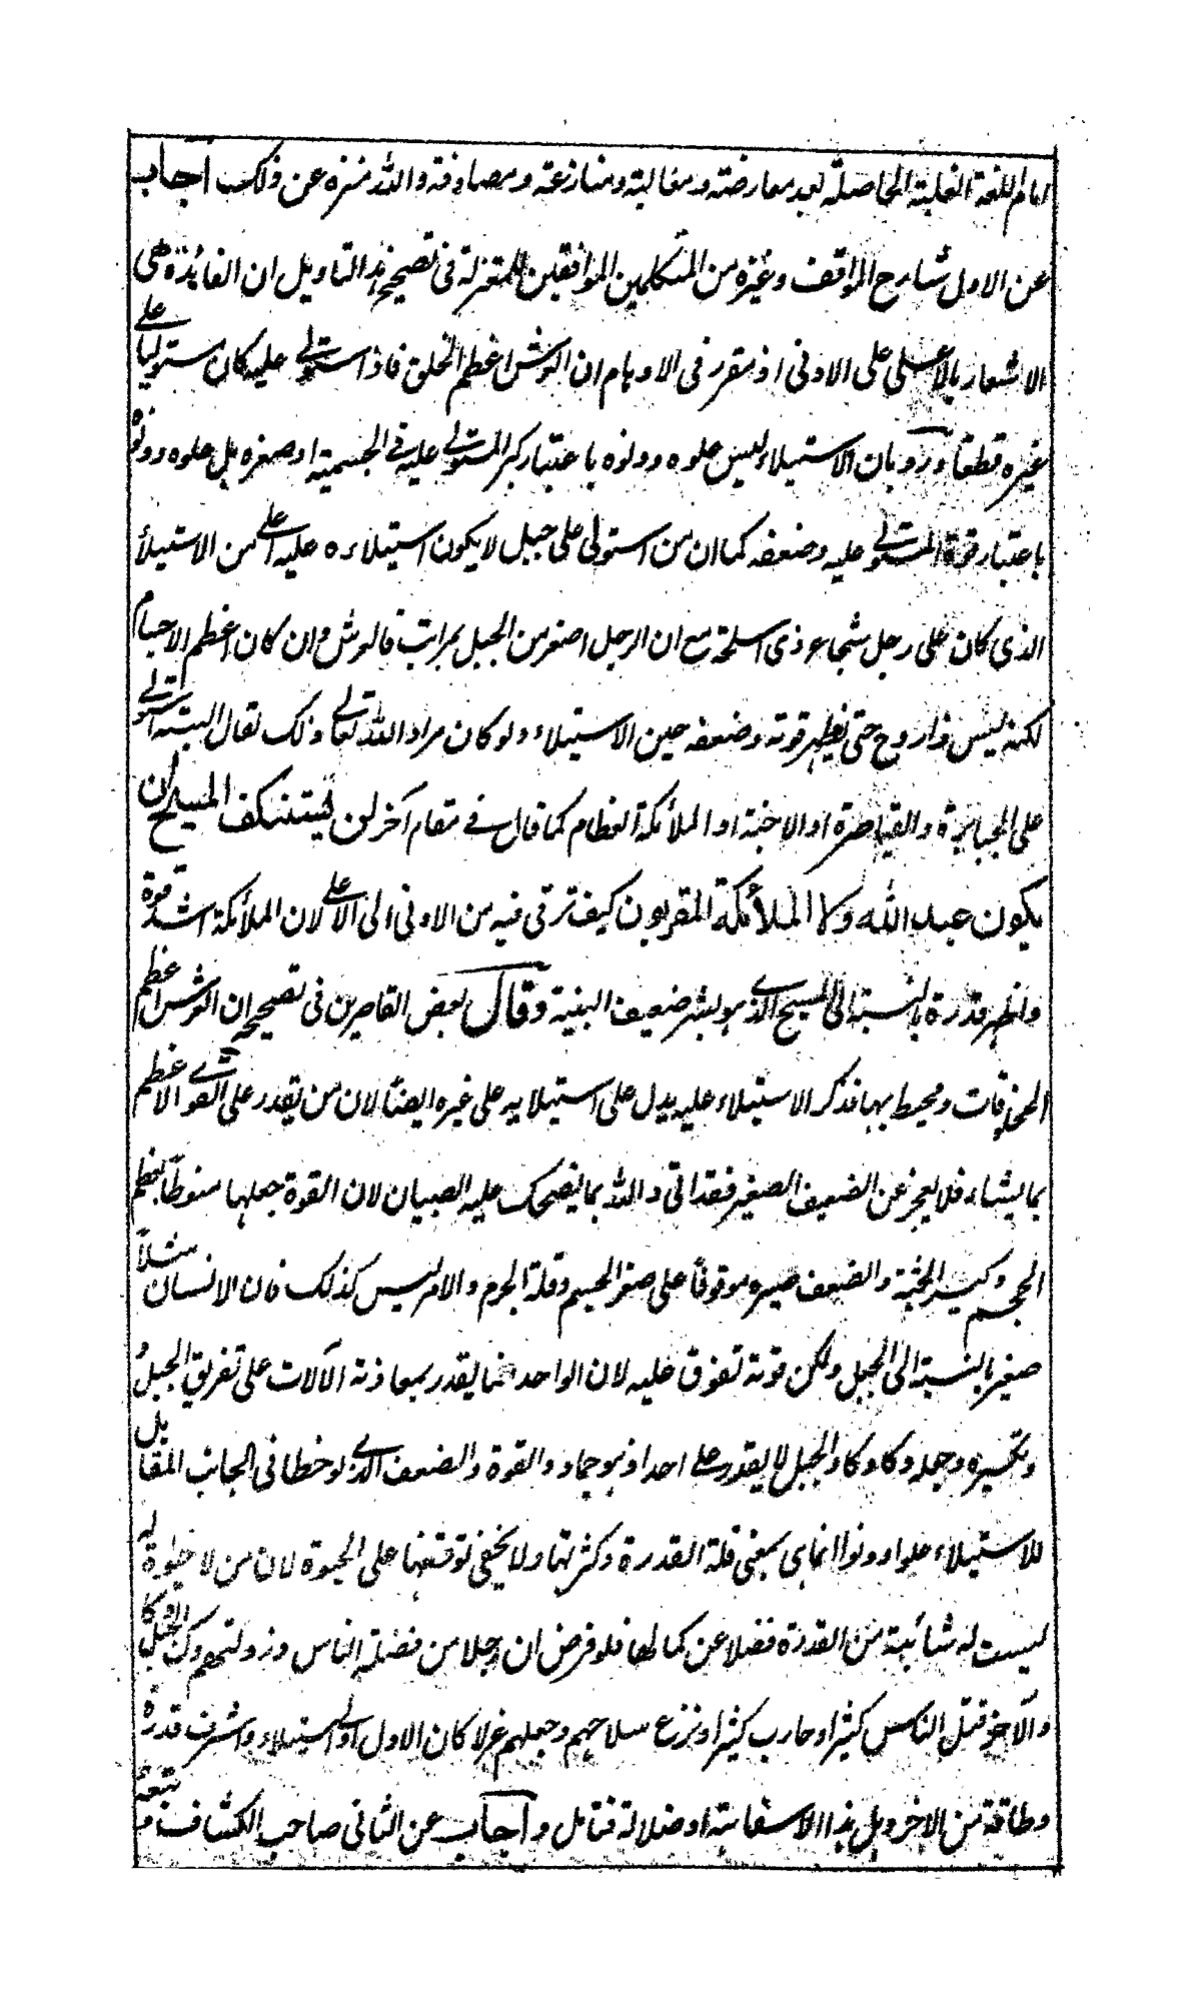 امام اللغة الغلبة الحاصلة بعد معارضة ومغالبة ومنازعة ومصادفة والله منزه عن ذلك اجاب
عن الاول شارح المواقف وغيره من المتكلمين الموافقين للمعتزلة فى تصحيح هذا التاويل ان الفائدة هى
الاشعار بالاعلى على الادنى اذ مقرر فى الاوهام ان العرش اعظم الخلق فاذا استولى عليه كان مستوليا على
غيره قطعا ورد بان الاستيلاء ليس علوه ودنوه باعتبار كبر المستولى عليه فى الجسمية او صغره بل علوه ودنوه
باعتبار قوة المستولى عليه وضعفه كما ان من استولى على جبل لا يكون استيلاءه عليه اعلى من الاستيلأ
الذى كان على رجل شجاع ذى اسلحة مع ان الرجل اصغر من الجبل بمراتب فالعرش وان كان اعظم الاجسام
لكنه ليس ذا روح حتى يظهر قوته وضعفه حين الاستيلاء ولو كان مراد الله تعالى ذلك لقال البتة استولى
على الجبابرة والقياصرة او الاجنة او الملائكة العظام كما قال فى مقام آخر لن يستنكف المسيح ان
يكون عبد الله ولا الملائكة المقربون كيف ترقى فيه من الادنى الى الاعلى لان الملائكة اشد قوة
واظهر قدرة بالنسبة الى المسيح الذى هو بشر ضعيف البنية وقال بعض القاصرين فى تصحيحه ان العرش اعظم
المخلوقات ومحيط بها فذكر الاستيلاء عليه يدل على استيلايه على غيره ايضا لان من يقدر على القوى الاعظم
بما يشاء فلا يعجز عن الضعيف الصغير فقد اتى والله بما يضحك عليه الصبيان لان القوة جعلها منوطا بعظم
الحجم وكبر الجثة والضعف صيره موقوفا على صغر الجسم وقلة الجرم والامر ليس كذلك فان الانسان مثلا
صغير بالنسبة الى الجبل ولكن قوته تفوق عليه لان الواحد منا يقدر بمعاونة الآلات على تفريق الجبل
وتكسيره وجعله دكا دكا والجبل لا يقدر على احد اذ هو جماد والقوة والضعف الذى لوحظا فى الجانب المقابل
للاستيلاء علوا ودنوا انما هى بمعنى قلة القدرة وكثرتها ولا يخفى توقفها على الحيوة لان من لا حيوة له
ليست له شائبة من القدرة فضلا عن كمالها فلو فرض ان رجلا من الناس دك الجبل
والآخر قتل الناس كثيرا وحارب كثيرا ونزع سلاحهم وجعلهم عزلا كان الاول اولى استيلاء واشرف قدرة
وطاقة من الاخر وهل هذا الا سفاهة او ضلالة فتامل واجاب عن الثانى صاحب الكشاف